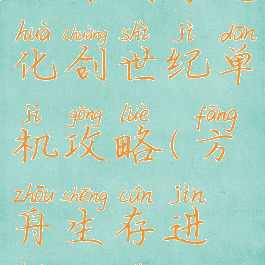 huà chuàng shì jì dān
化创世纪单
jī gōng lüè fāng
机攻略(方
zhōu shēng cún jìn
舟生存进